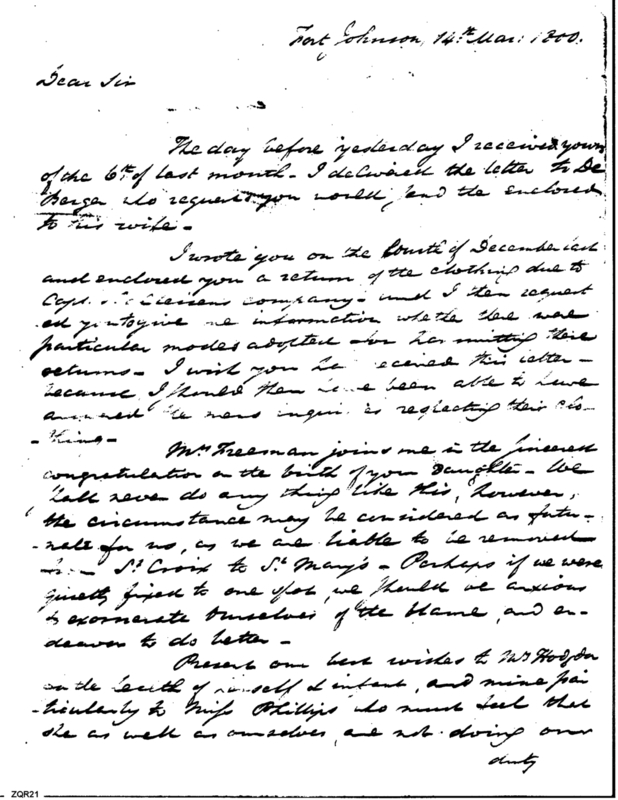 Fort Johnson, 14th Mar: 1800.
Dear Sir
The day before yesterday I received yours
of the 6th of last month - I delivered the letter to De
Berger who requests you would send the enclosed
to his wife -
I wrote you on the fourth of December last
and enclosed you a return of the clothing due to
Capt. company - and I then request
ed you to give me information whether there were
particular modes adopted for transmitting these
returns - I wish you had received this letter -
because I should then have been able to have
answered the mens inquiries respecting their clo-
-thing -
Mrs Freeman joins me in the sincerest
congratulation on the birth of your Daughter - We
shall never do any thing like this, however,
the circumstance may be considered as fortu-
-nate for us, as we are liable to be removed
from St Croix to St Mary's - Perhaps if we were
quietly fixed to one spot, we should be anxious
to exonerate ourselves of the blame, and en-
deavor to do better -
Present our best wishes to Mrs Hodgdon
on the health of herself & infant, and mine par
-ticularly to Miss Phillips who must feel that
she as well as ourselves, are not doing our
duty
ZQR21